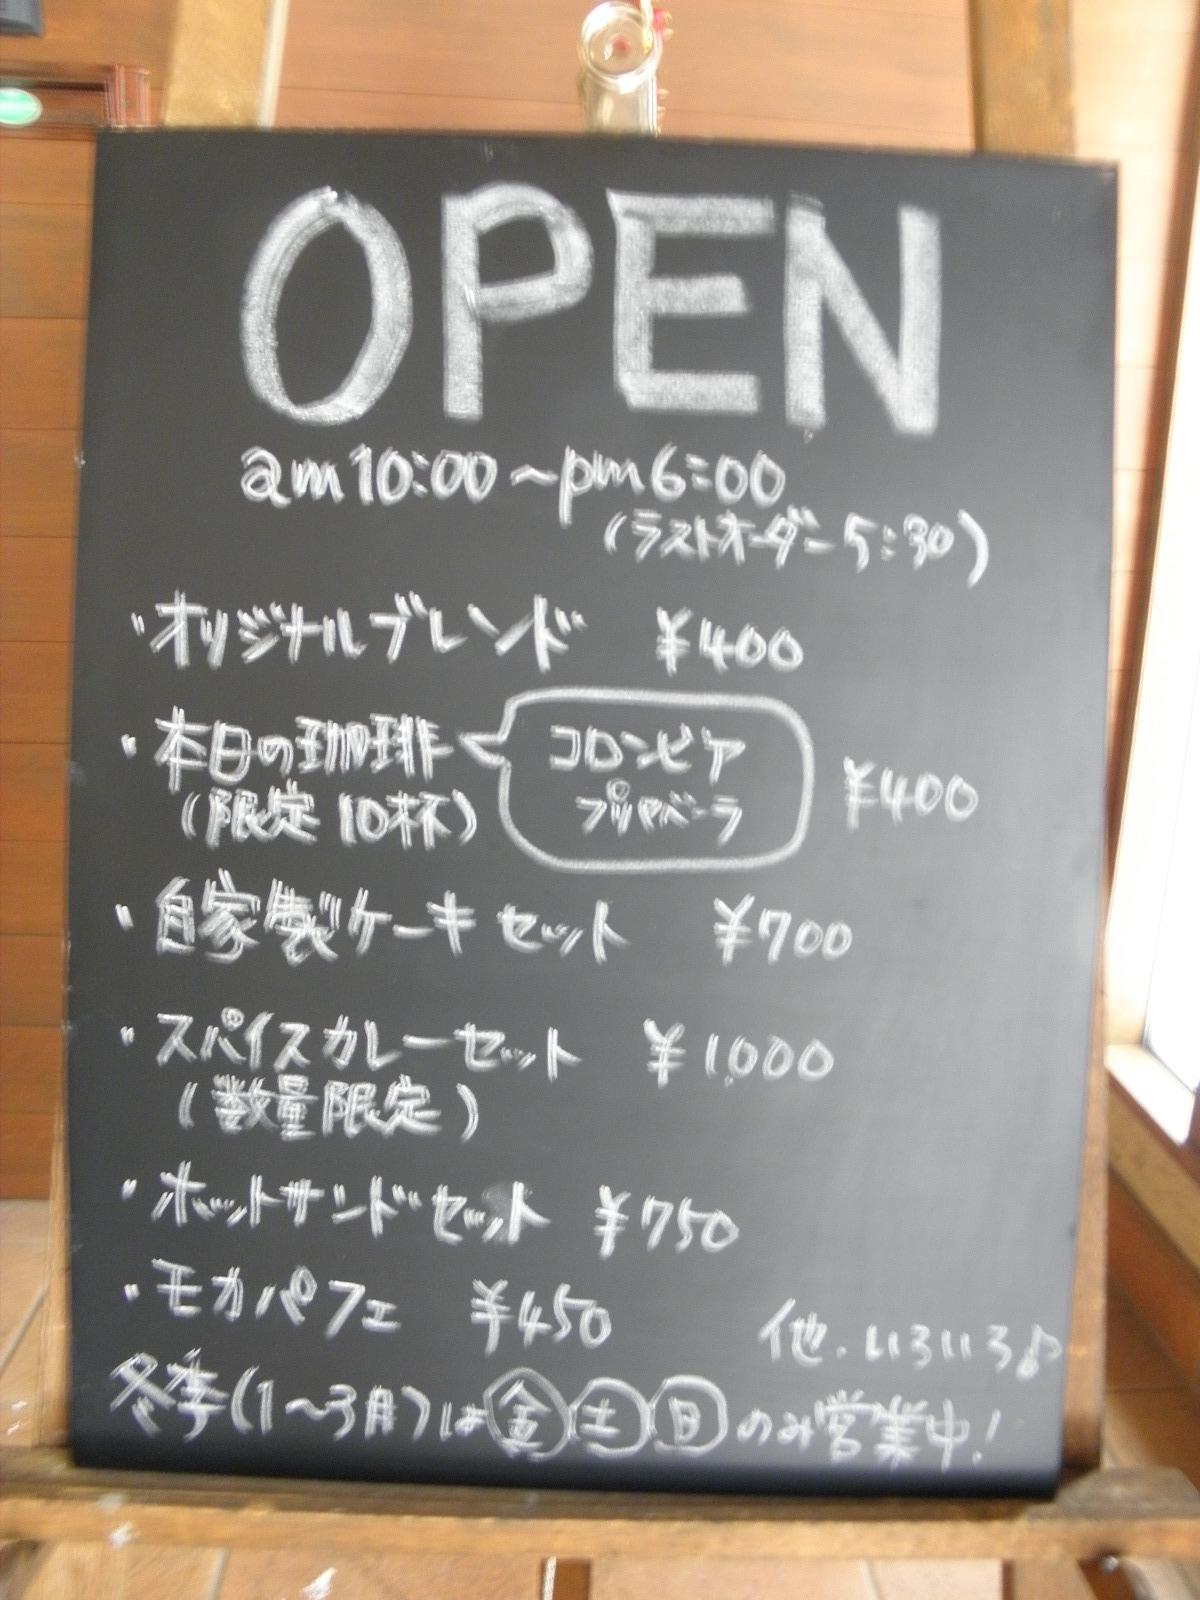 OPEN
am10:00~pm6:00
(ラストオーダー5:30)
・オリジナルブレンド ¥400
・本日の珈琲 コロンビア
(限定10杯) ¥400
・自家製ケーキセット ¥700
・スパイスカレーセット ¥1,000
(数量限定)
・ホットサンドセット ¥750
・モカパフェ ¥450
他.いろいろ♪
冬季(1~3月)は金土日のみ営業中!